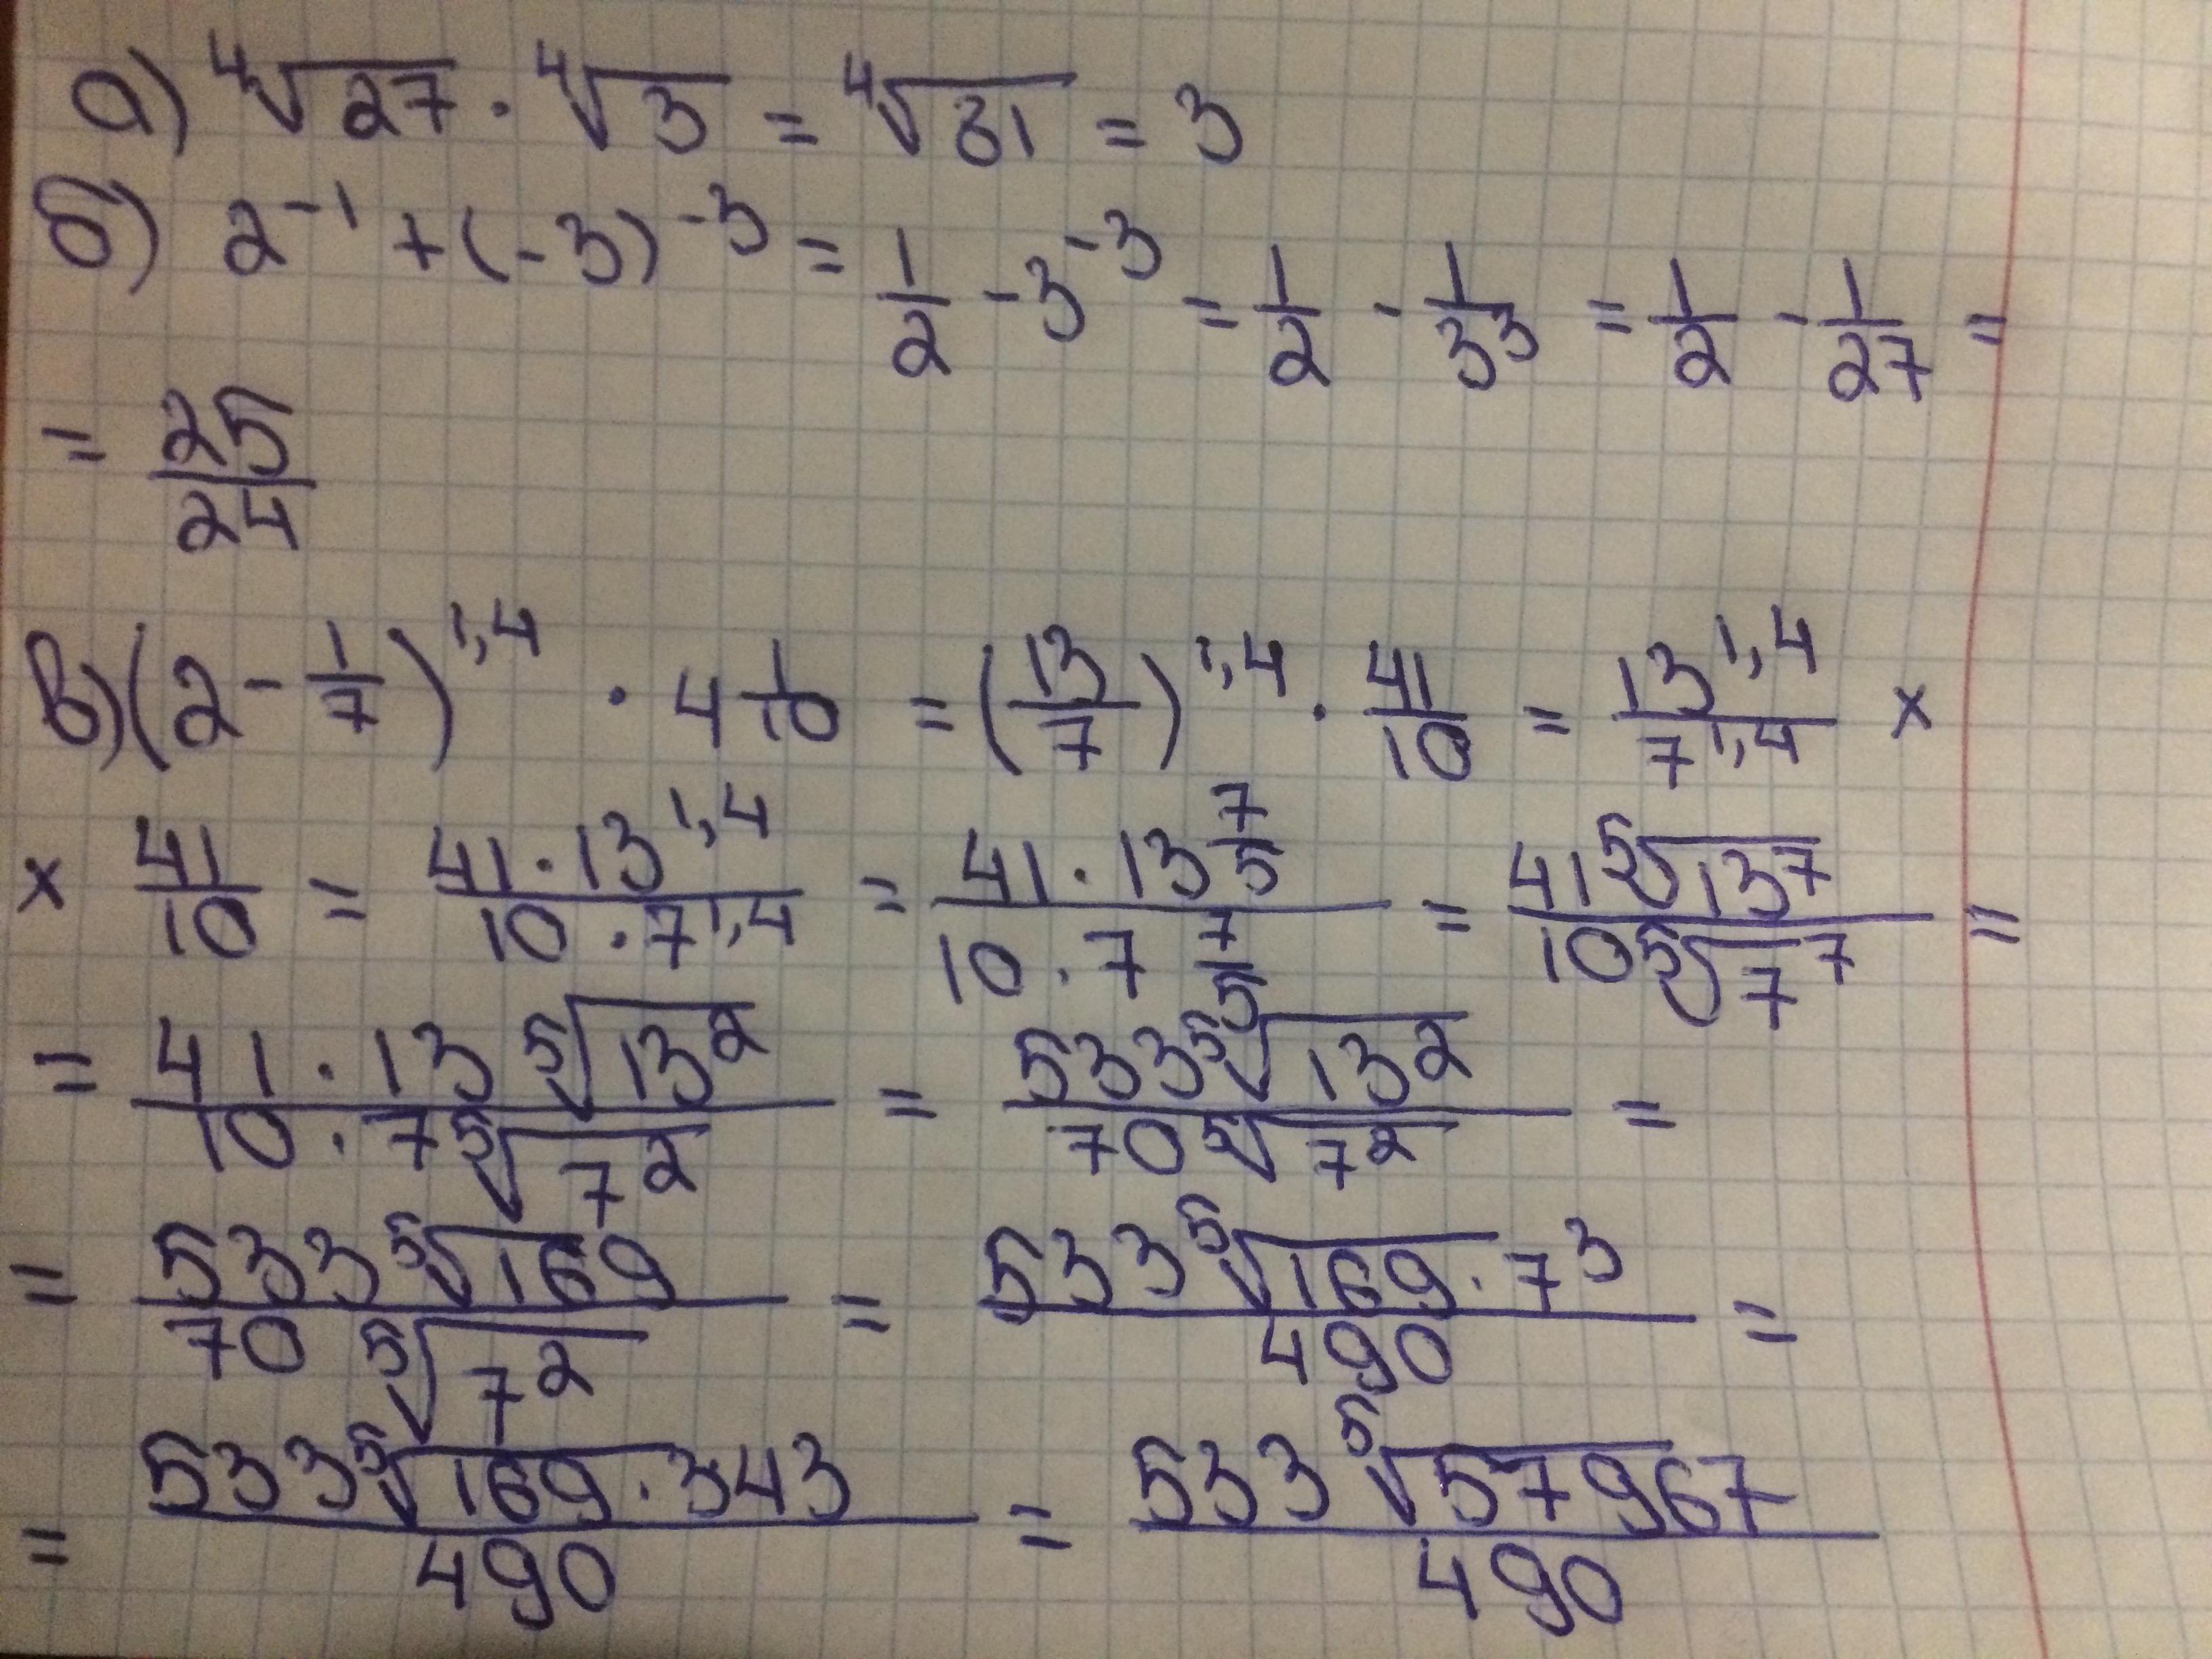 а) ⁴√27 · ⁴√3 = ⁴√31 = 3
б) 2⁻¹ + (-3)⁻³ = 1/2 - 3⁻³ = 1/2 - 1/3³ = 1/2 - 1/27 =
= 25/24
в) (2 - 1/7)^1,4 · 4 1/10 = (13/7)^1,4 · 41/10 = 13^1,4/7^1,4 ×
× 41/10 = 41·13^1,4/10·7^1,4 = 41·13^7/5/10·7^7/5 = 41⁵√13⁷/10⁵√7⁷ =
= 41·13 ⁵√13²/10·7 ⁵√7² = 533 ⁵√13²/70 ⁵√7² =
= 533 ⁵√169/70 ⁵√7² = 533 ⁵√169·7³/490 =
= 533 ⁵√169·343/490 = 533 ⁵√57967/490